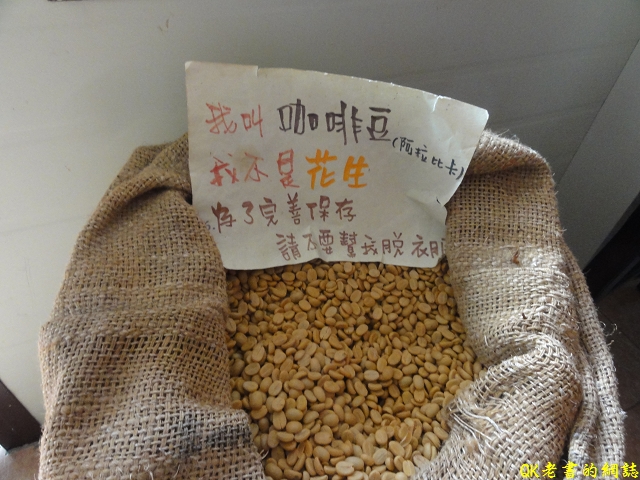 我叫咖啡豆(阿拉比卡)
我不是花生
為了完善保存
請不要幫我脫衣服
QK老書的網誌